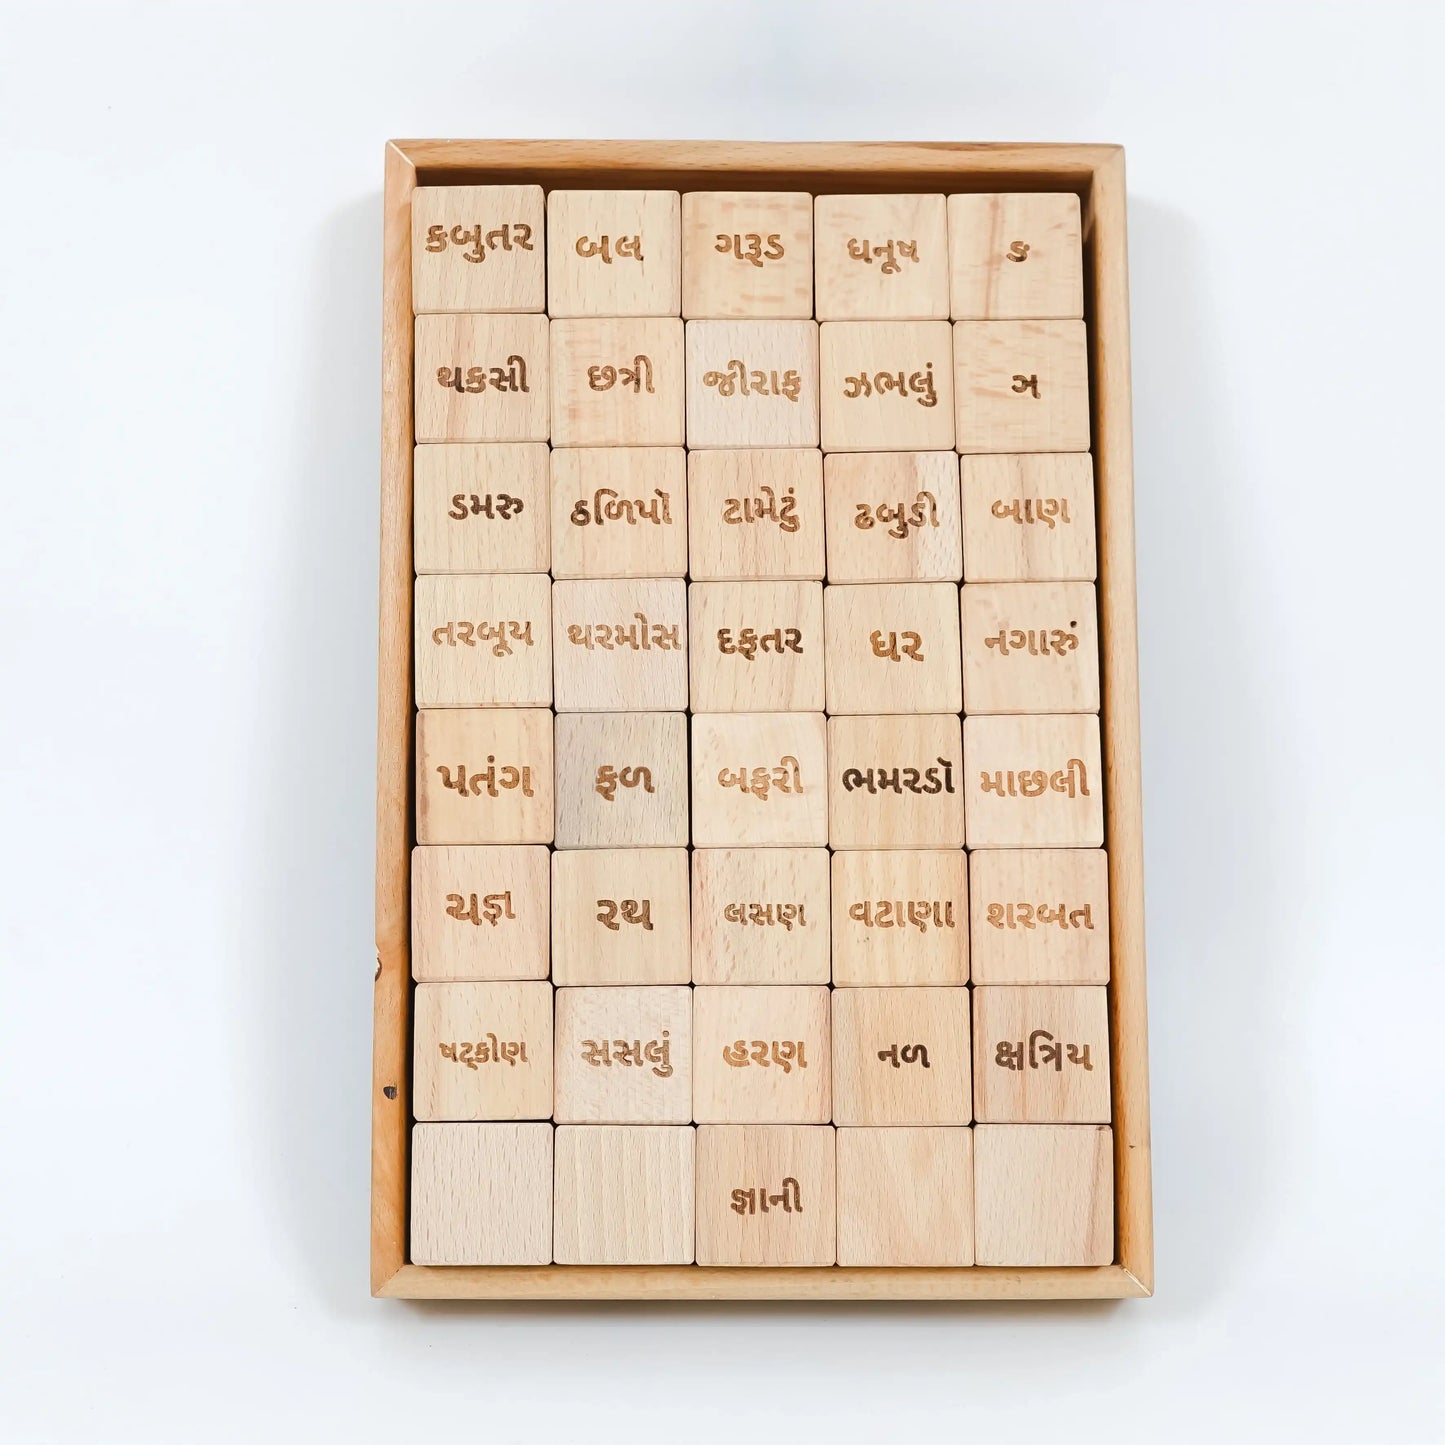 કબુતર બલ ગરૂડ ધનૂષ ઙ
થકસી છત્રી જીરાફ ઝભલું ઞ
ડમરુ ઠળિપૉ ટામેટું ઢબુડી બાણ
તરબૂચ થરમોસ દફતર ધર નગારું
પતંગ ફળ બફરી ભમરડૉ માછલી
યજ્ઞ રથ લસણ વટાણા શરબત
ષટ્કોણ સસલું હરણ નળ ક્ષત્રિય
જ્ઞાની